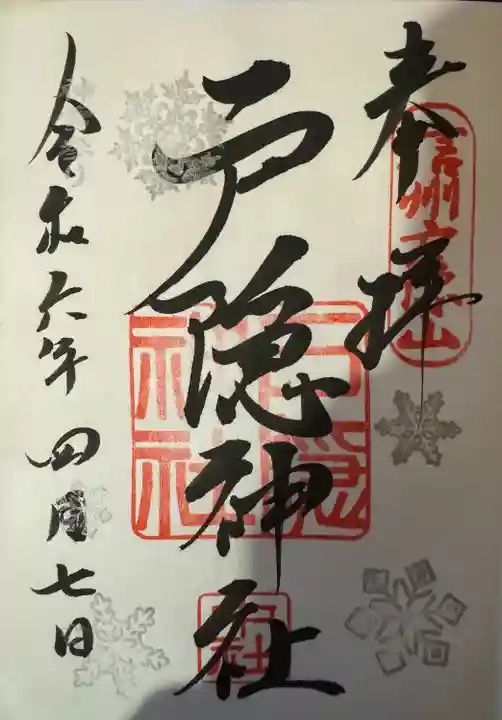 奉拝
信州戸隠山
戸隠神社
戸隠
神社
令和六年四月七日